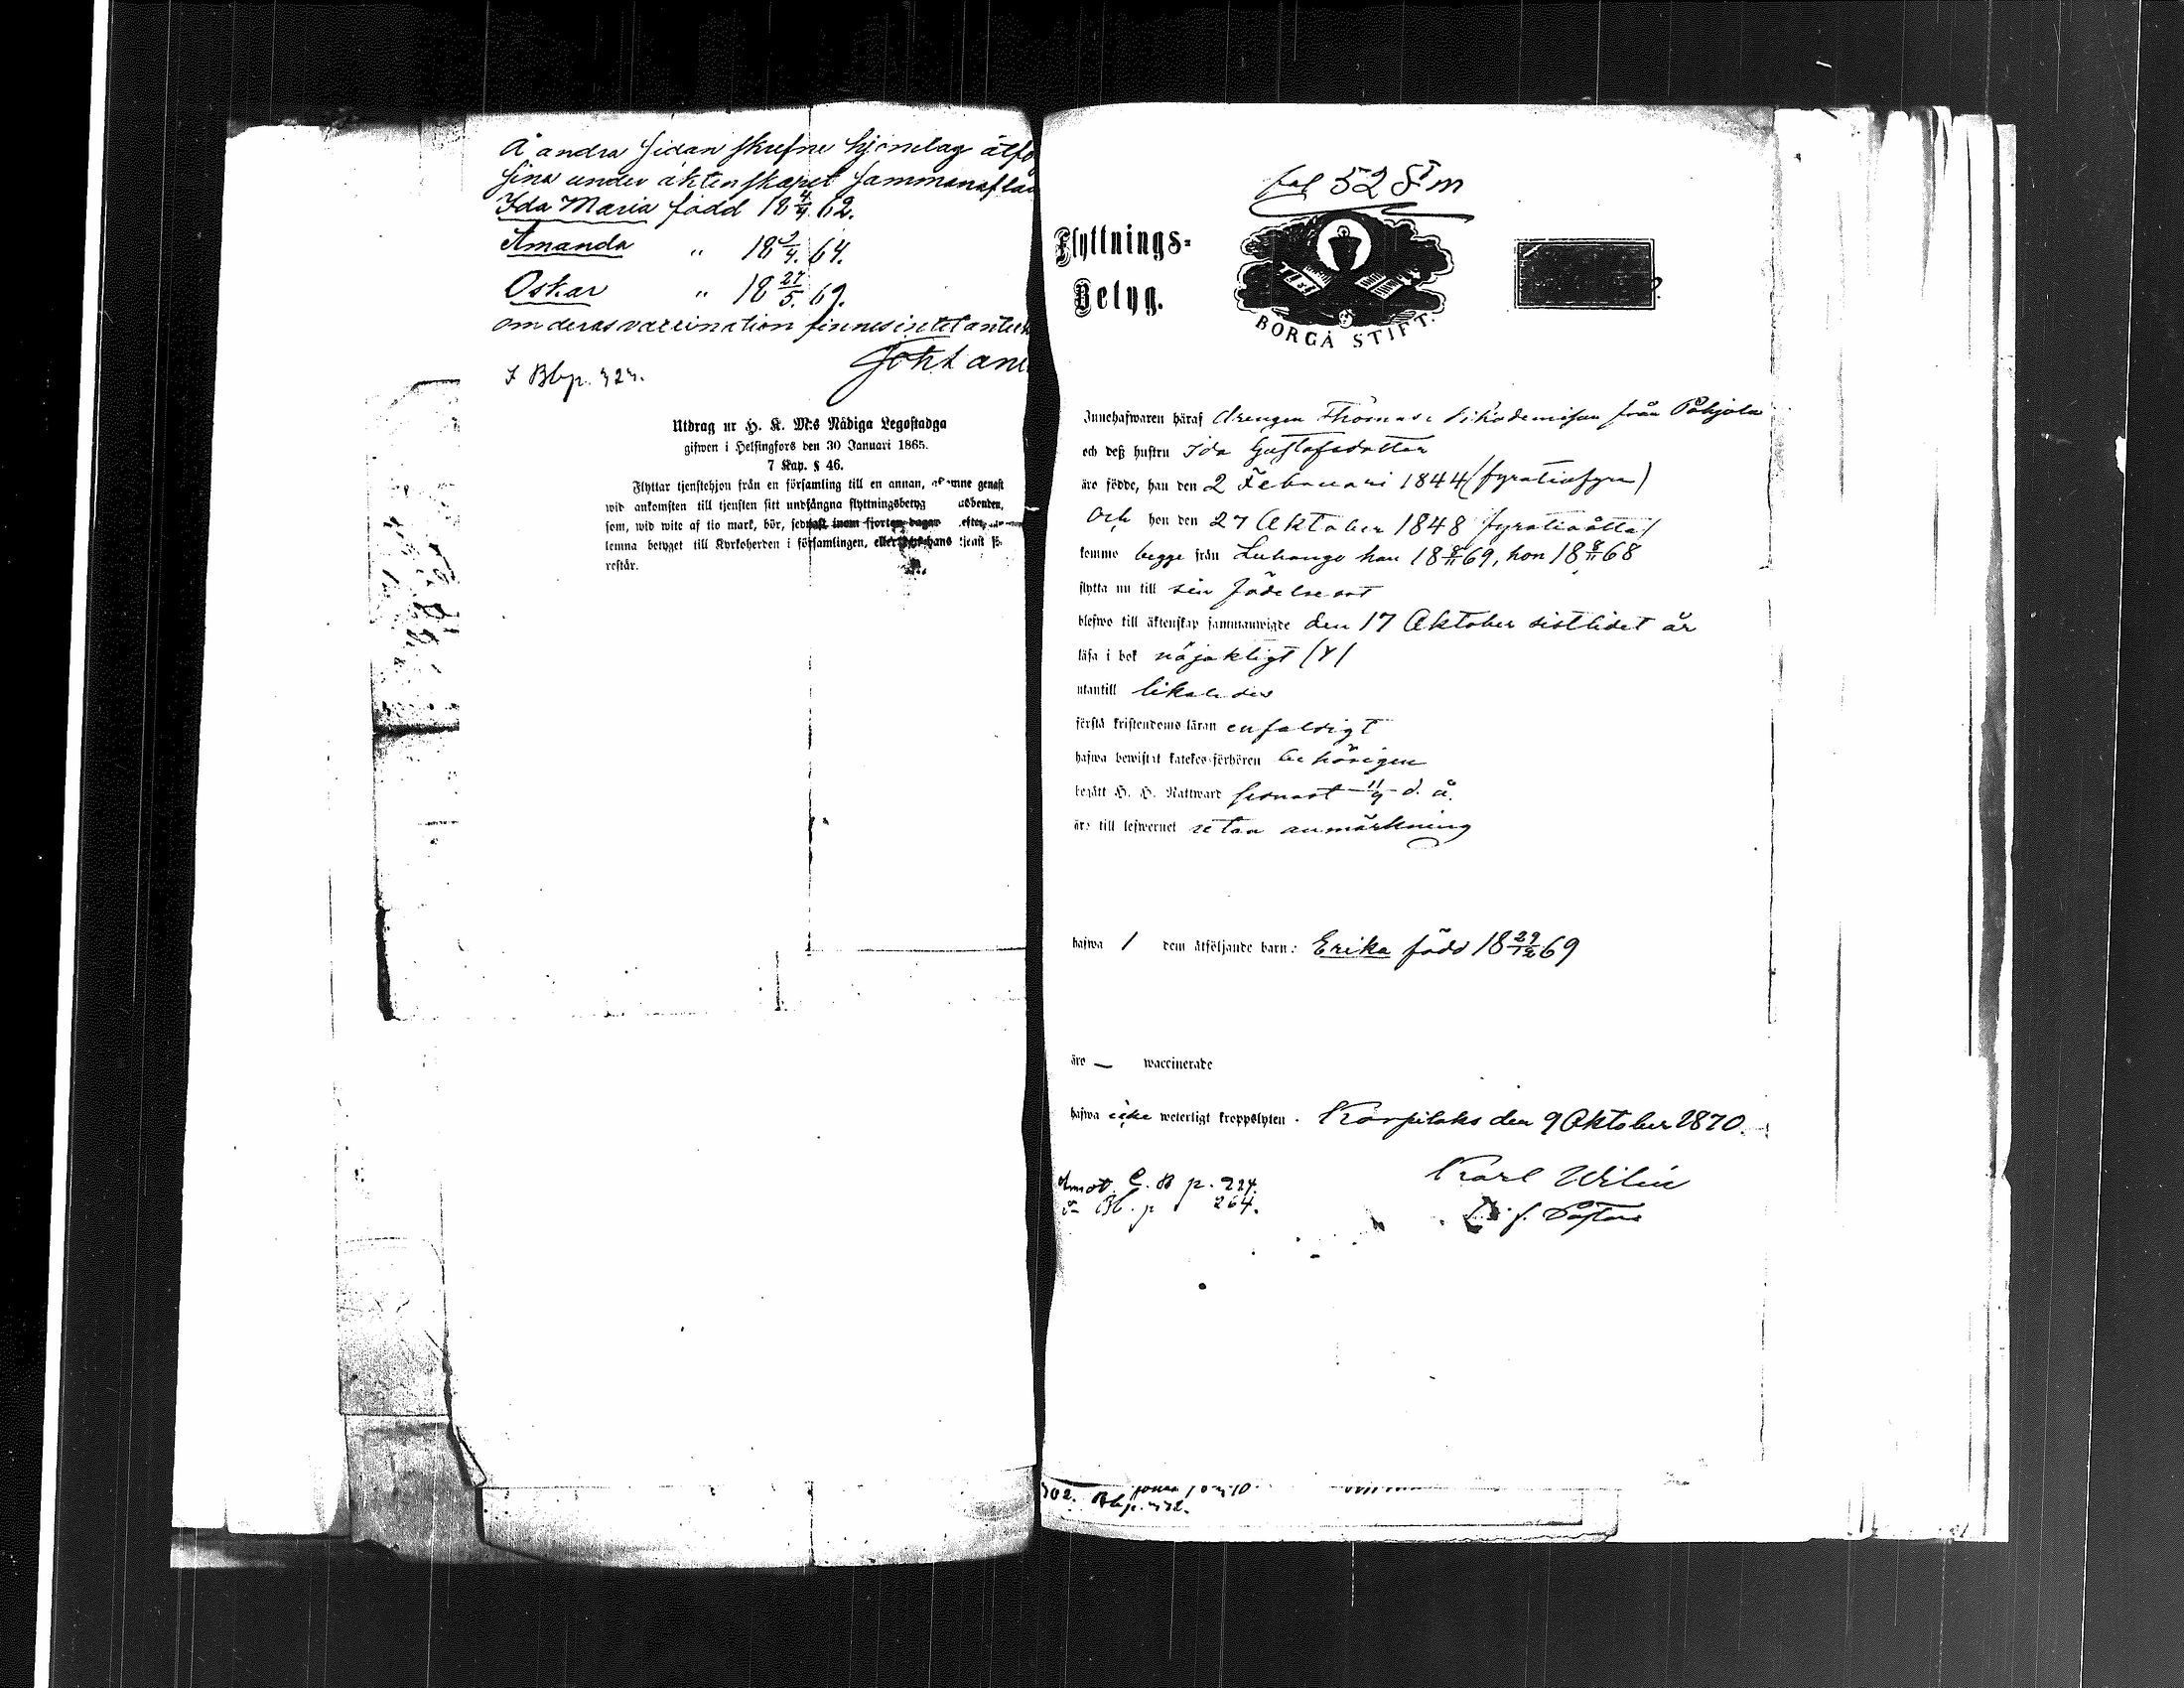 Å andra sidan skrefne hjonelag åtfö
sina under äktenskapet sammanaflad
Ida Maria född 18 4/4 62.
Amanda " 18 2/4. 64.
Oskar " 18 27/5. 69.
om deras vaccination finnes intet anteck
Joh L ane
I Bbp. 323.
Utdrag ur H. K. M:s Nådiga Legostadga
gifwen i Helsingfors den 30 Januari 1865.
7 Kap. § 46.
Flyttar tjenstehjon från en församling till en annan, aflemne genast
wid ankomsten till tjensten sitt undfångna flyttningsbetyg husbonden,
som, wid wite af tio mark, bör, sednast inom fjorton dagar efter
lemna betyget till Kyrkoherden i församlingen, eller hans tjenst
restår.
fol 52 Sm
Flyttnings-
Betyg.
BORGÅ STIFT.
Innehafwaren häraf drengen Thomas från Pohjola
och deß hustru Ida Gustafsdotter
äro födde, han den 2 Februari 1844 (fyratiofyra)
och hon den 27 Oktober 1848 fyratioåtta/
kommo begge från Luhango han 18 8/11 69, hon 18 8/11 68
flytta nu till sin födelseort
blefwo till äktenskap sammanwigde den 17 Oktober sistlidet år
läsa i bok nöjaktigt (Y)
utantill likaledes
förstå kristendoms läran enfaldigt
hafwa bewistat katekes-förhören behörigen
begått H. H. Nattward senast 11/9 d. å.
äro till lefwernet utan anmärkning
hafwa 1 dem åtföljande barn: Erika född 18 29/12 69
äro — waccinerade
hafwa icke weterligt kroppslyten. Korpilaks den 9 Oktober 1870.
Karl Wilén
v. Pastor
Annot. C. B p. 224.
Bb. p 264.
302. Bbp.